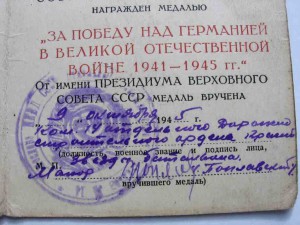 НАГРАЖДЕН МЕДАЛЬЮ
"ЗА ПОБЕДУ НАД ГЕРМАНИЕЙ
В ВЕЛИКОЙ ОТЕЧЕСТВЕННОЙ
ВОЙНЕ 1941—1945 гг."
От имени ПРЕЗИДИУМА ВЕРХОВНОГО
СОВЕТА СССР МЕДАЛЬ ВРУЧЕНА
9 октября 1945
отдельного Дорожно
строительного ордена Красной
(должность, военное звание и подпись лица,
М. П.
Майор
вручившего медаль)